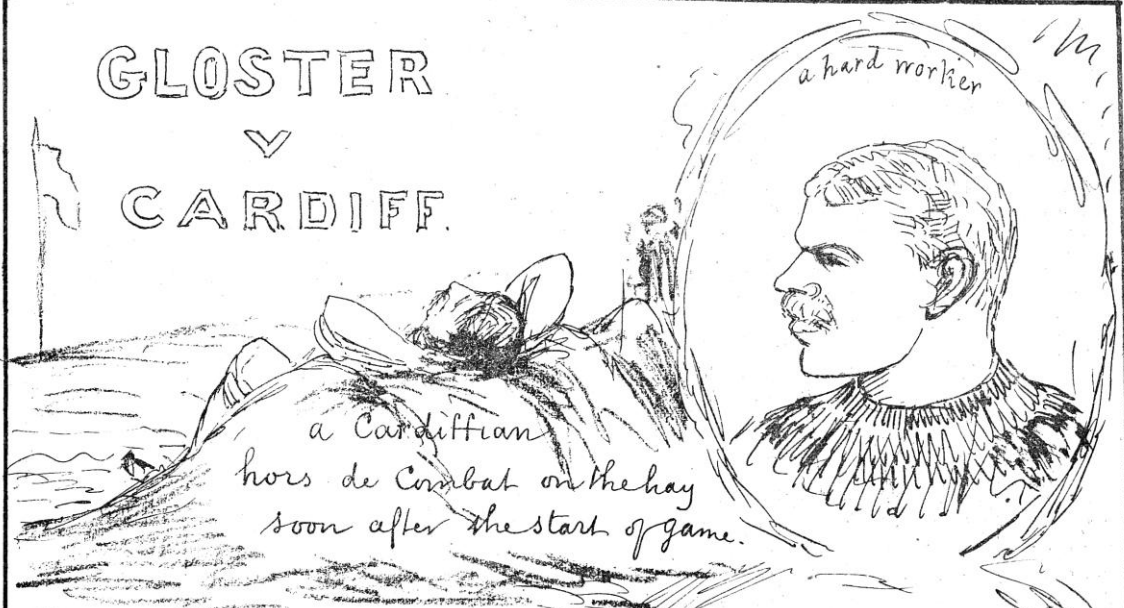 GLOSTER
V
CARDIFF.
a hard worker
a Cardiffian
hors de Combat on the hay
soon after the start of game.